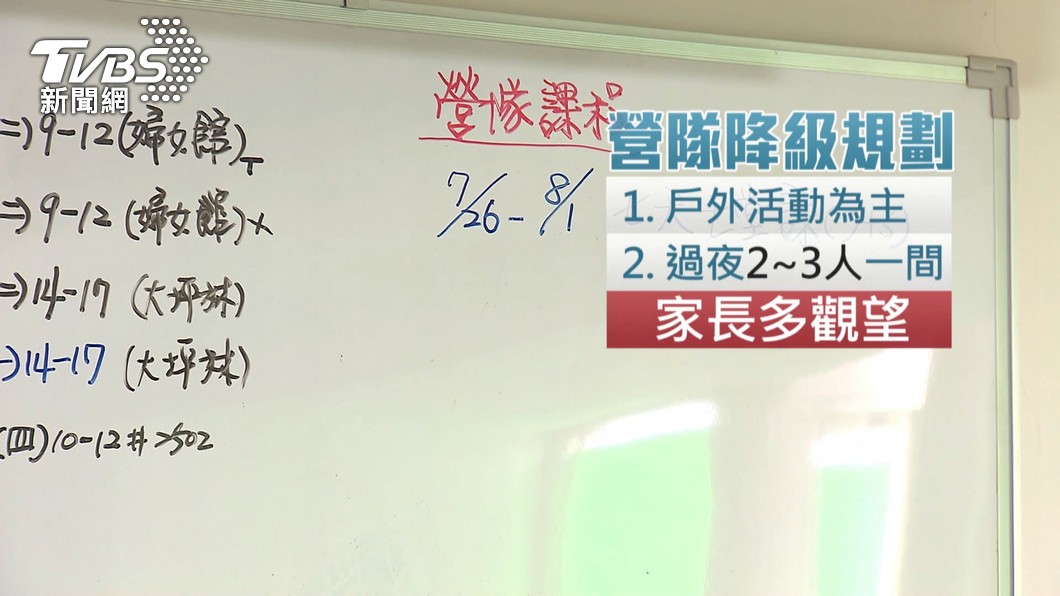 TVBS
新聞網
⇒9-12(婦女館)T
⇒9-12(婦女館)X
⇒14-17(大坪林)
→14-17(大坪林)
(四)10-12#2502
營隊課程
7/26-8/1
營隊降級規劃
1. 戶外活動為主
2. 過夜2~3人一間
家長多觀望